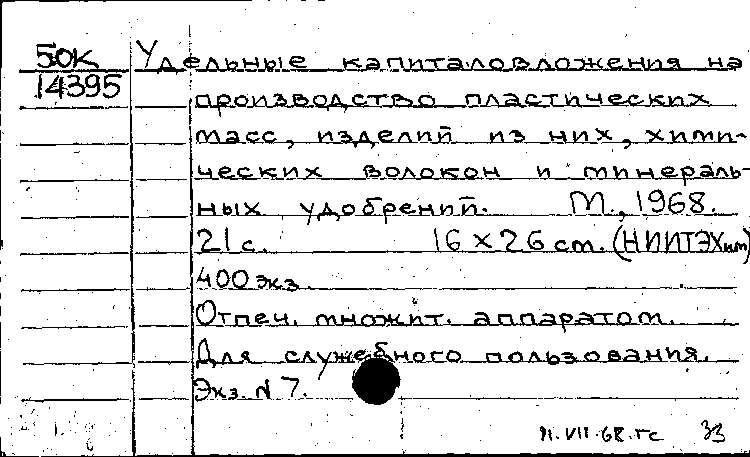 50К Удельные капиталовложения на
14395 производство пластических
масс, изделий из них, хими-
ческих волокон и минераль-
ных удобрений. М., 1968.
21 с. 16 × 26 cm. (НИИТЭХим)
400 экз.
Отпеч. множит. аппаратом.
Для служебного пользования.
Экз. N 7.
VII.68.гс 33